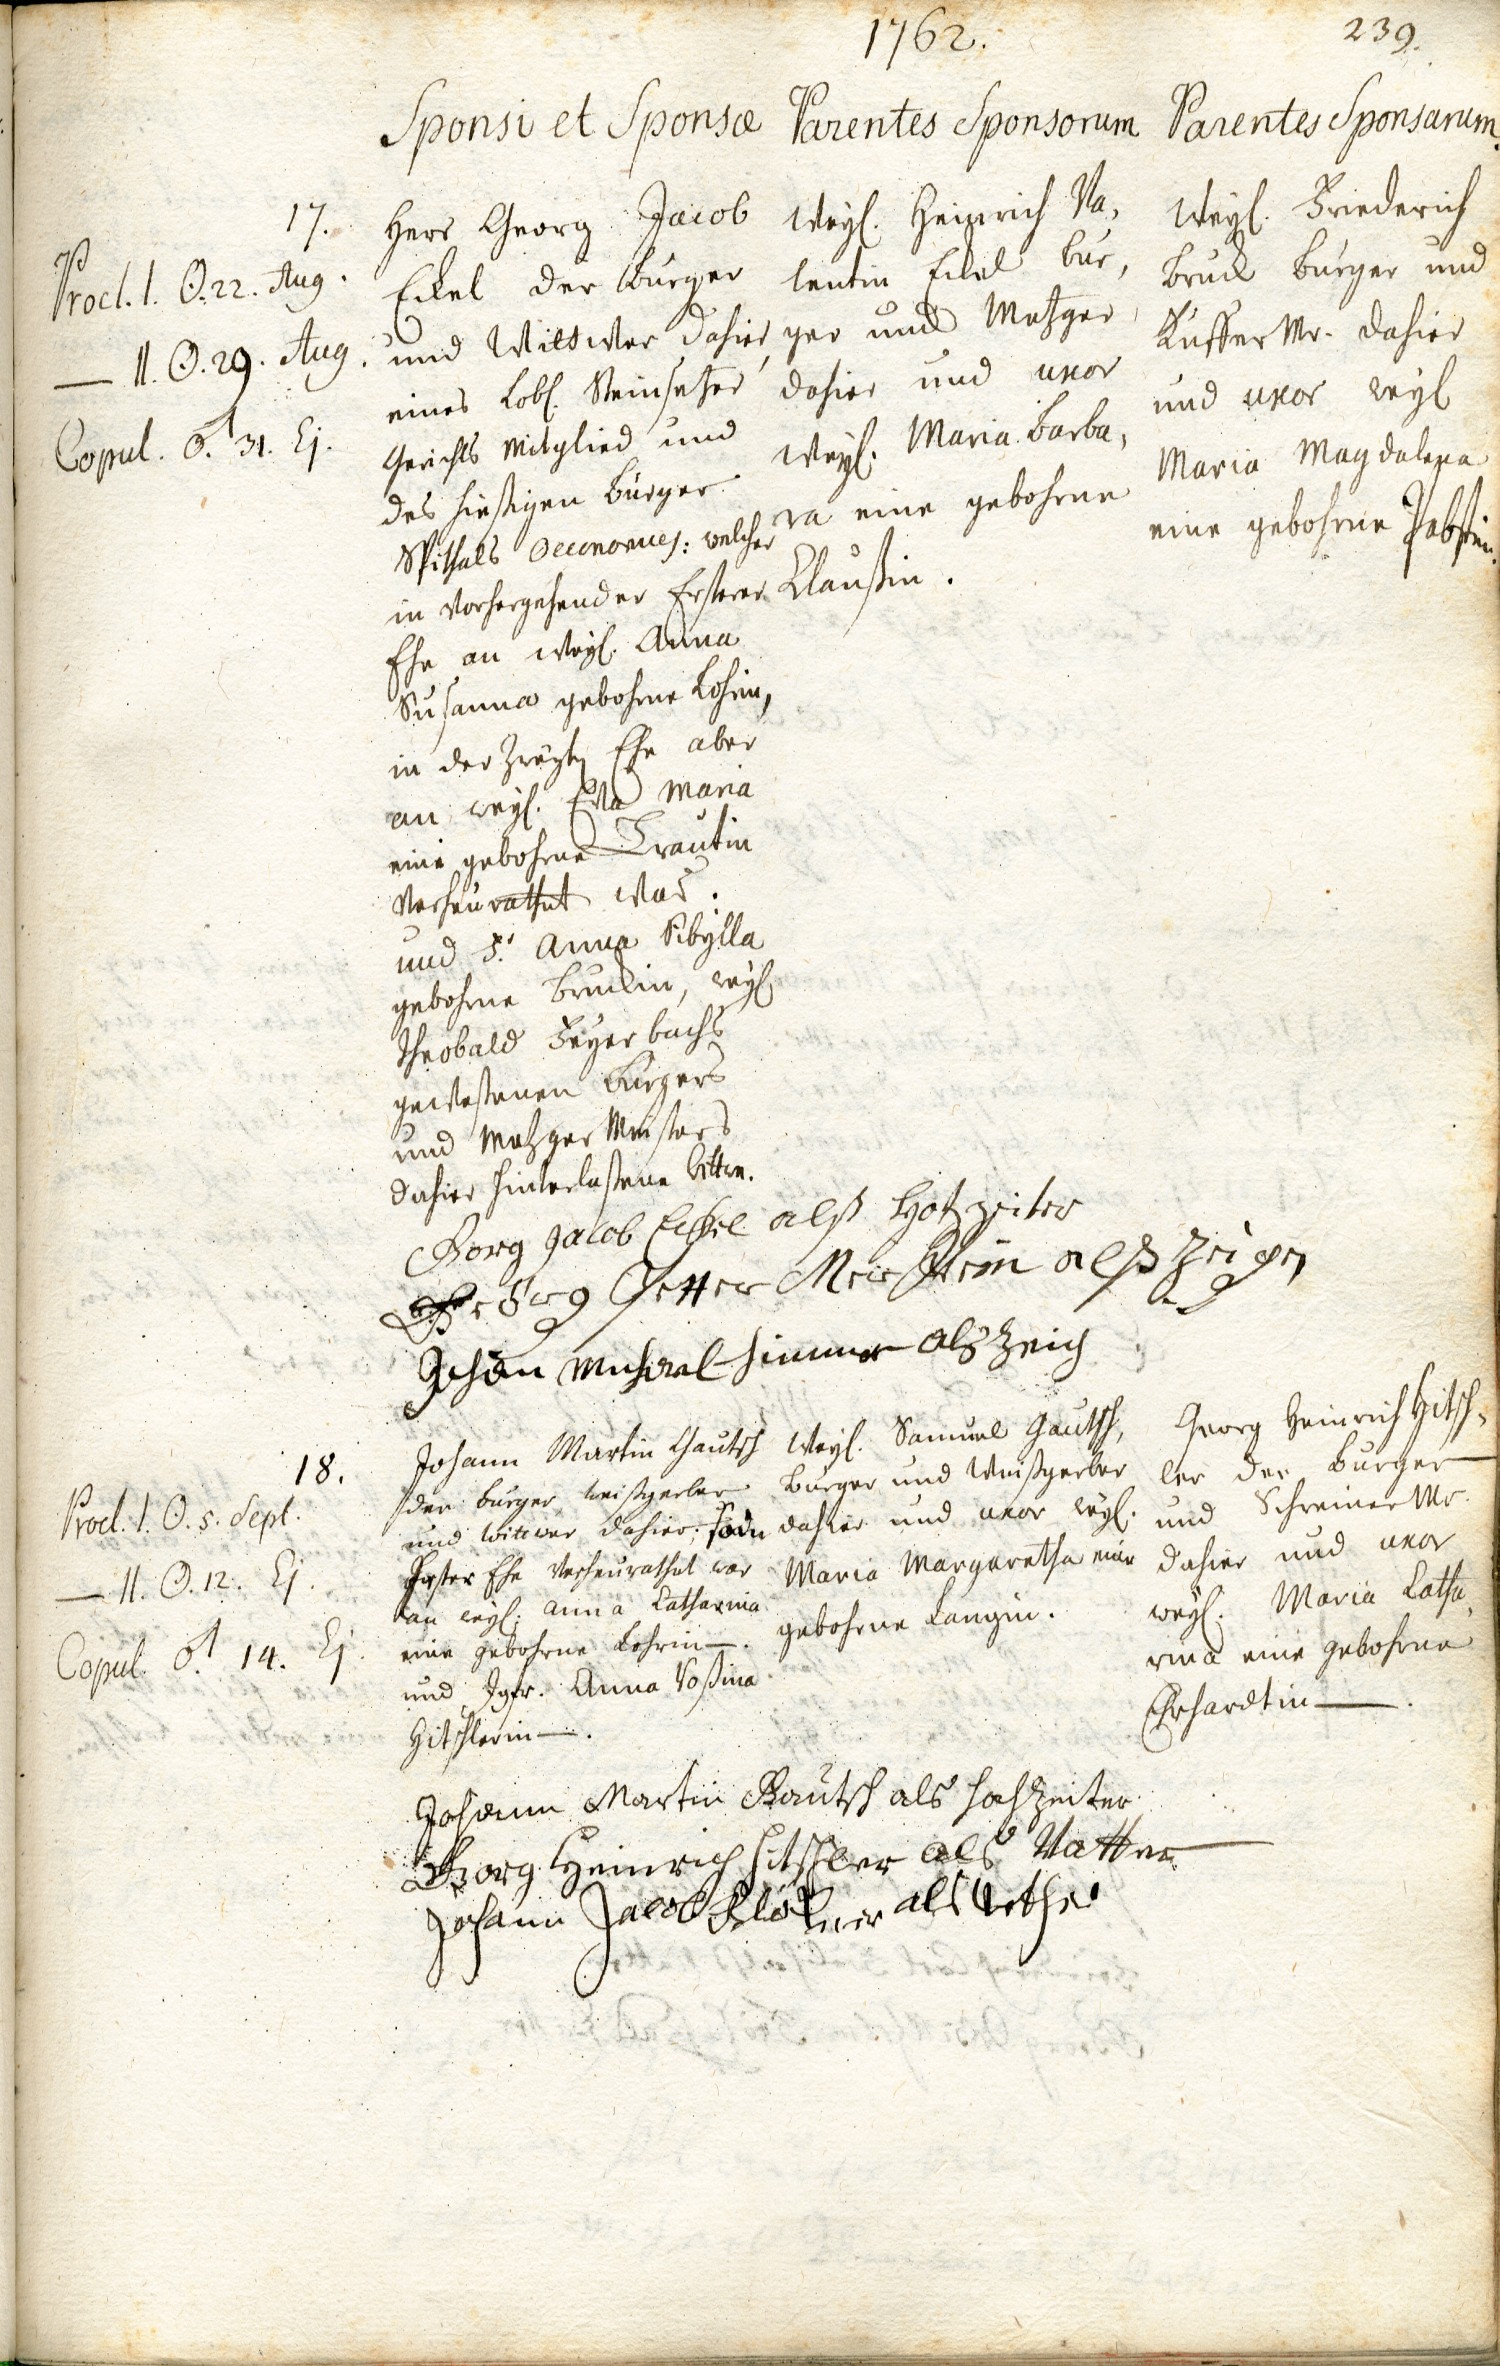 1762.
239.
Sponsi et Sponsæ
Parentes Sponsorum
Parentes Sponsarum.
17.
Procl. I. ☉. 22. Aug.
— II. ☉. 29. Aug.
Copul. ♂ 31. Ej.
Herr Georg Jacob
Eckel der Burger
und Wittwer dahier,
eines Lobl. Steinsetzer
Gerichts Mitglied und
des hießigen Burger
Spithals Oeconomus: welcher
in vorhergehender Ersterer
Ehe an weyl. Anna
Susanna gebohrne Lohrin,
in der Zweyten Ehe aber
an weyl. Eva Maria
eine gebohrne Trautin
verheurathet war.
und Fr. Anna Sibylla
gebohrne Bruckin, weyl.
Theobald Feyerbachs
gewesenen Burgers
und Metzger Meisters
dahier hinterlaßene Wittwe.
Weyl. Heinrich Va,
lentin Eckel Bur,
ger und Metzger
dahier und uxor
weyl. Maria Barba,
ra eine gebohrne
Claußin.
Weyl. Friederich
Bruck Burger und
Kuffer Mr. dahier
und uxor weyl.
Maria Magdalena
eine gebohrne Pabstin.
Gorg Jacob Eckel alß Hotzeiter
Georg Petter Meinstein alß Zeigen
Johan Michael Himmer als Zeich
18.
Procl. I. ☉. 5. Sept.
— II. ☉. 12. Ej.
Copul. ♂ 14. Ej.
Johann Martin Gautsch
der Burger weißgerber
und Wittwer dahier, so in
Erster Ehe verheurathet war
an weyl. Anna Catharina
eine gebohrne Lohrin —.
und Jgfr. Anna Rosina
Hitschlerin —.
Weyl. Samuel Gautsch,
Burger und Weißgerber
dahier und uxor weyl.
Maria Margaretha eine
gebohrne Langin.
Georg Heinrich Hitsch,
ler der Burger
und Schreiner Mr.
dahier und uxor
weyl. Maria Catha,
rina eine gebohrne
Ehrhardtin —.
Johann Martin Gautsch als Hochzeiter
Georg Heinrich Hitschler als Vatter
Johann Jacob Klöckner als Vether